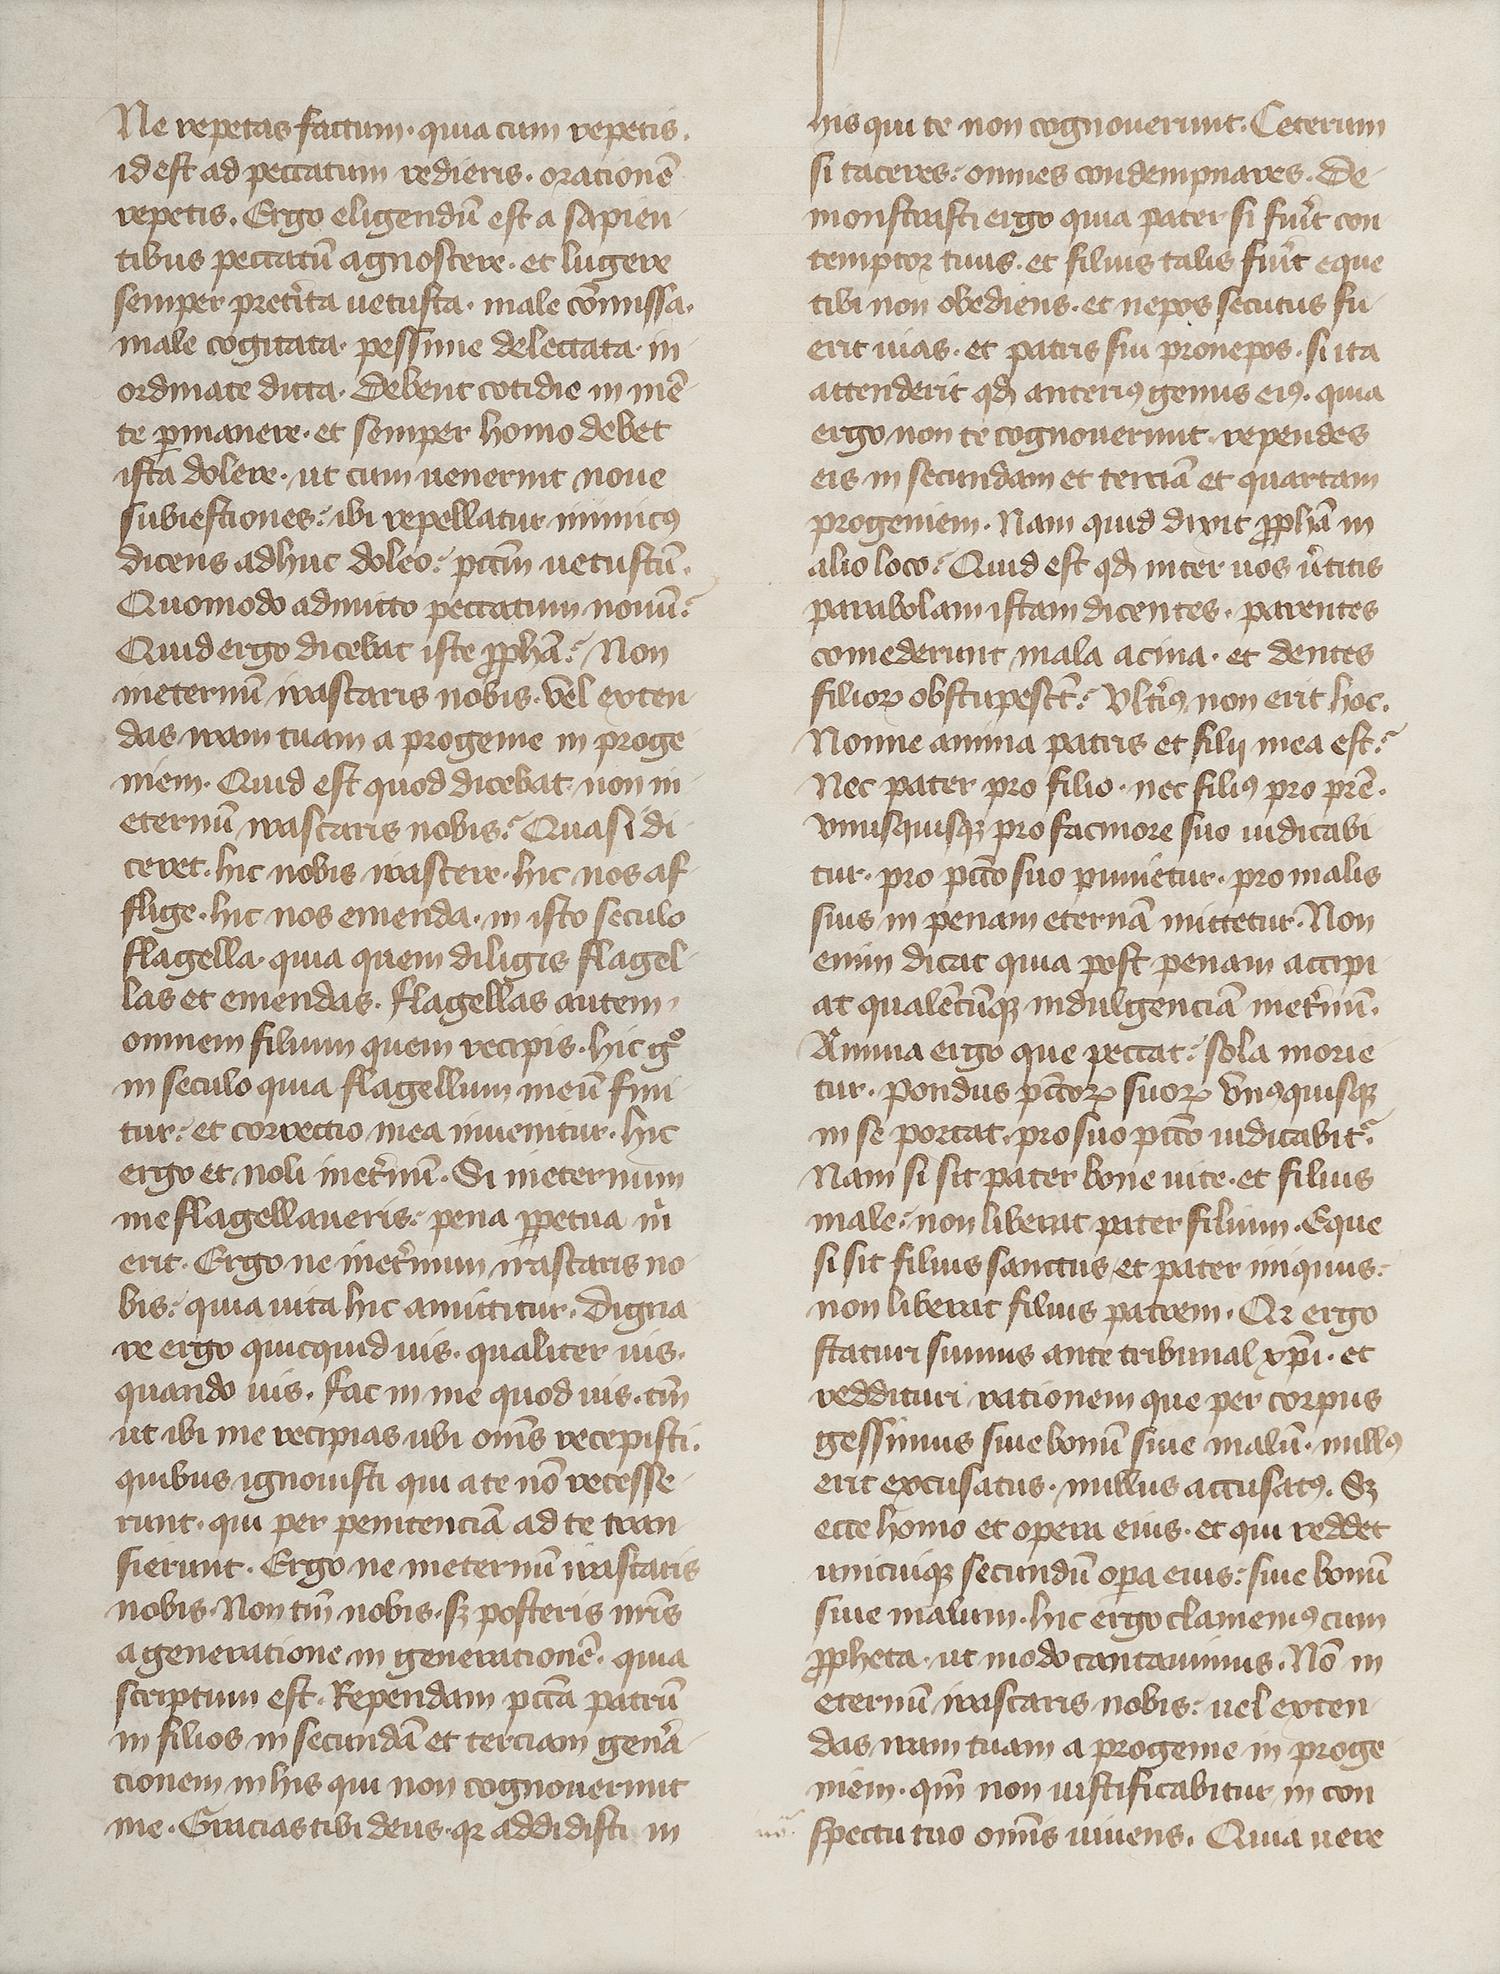 Ne repetas factum · quia cum repetis .
id est ad peccatum redieris · oracionē
repetis . Ergo eligendū est a sapien
tibus peccatū agnoscere · et lugere
semper pret̾ita uetusta · male cōmissa ·
male cogitata · pessime delectata · in
ordinate dicta · Debent cotidie in mē
te ꝑmanere · et semper homo debet
ista dolere · ut cum uenerint noue
subiestiones : ibi repellatur inimicꝰ
dicens adhuc doleo : pctm̄ uetustū .
Quomodo admitto peccatum nouū ?
Quid ergo dicebat iste ꝓphā ? Non
ineternū irascaris nobis · vel exten
das iram tuam a progenie in proge
niem · Quid est quod dicebat · non in
eternū irascaris nobis ? Quasi di
ceret · hic nobis irascere · hic nos af
flige · hic nos emenda · in isto seculo
flagella · quia quem diligis flagel
las et emendas . flagellas autem
omnem filium quem recipis · hic gͦ
in seculo quia flagellum meū fini
tur : et correctio mea inuenitur · hic
ergo et noli inet̾nū · Si ineternum
me flagellaueris : pena ꝑpetua m̄
erit · Ergo ne inet̾num irascaris no
bis : quia uita hic amittitur · Digna
re ergo quicquid uis . qualiter uis .
quando uis . fac in me quod uis · tm̄
ut ibi me recipias ubi om̄s recepisti .
quibus ignouisti qui a te nō recesse
runt · qui per penitenciā ad te tran
sierunt · Ergo ne ineternū irascaris
nobis · Non tm̄ nobis · sꝫ posteris nr̄is
a generatione in generationē · quia
scriptum est · Rependam pctā patrū
in filios in secundā et terciam gen̾a
cionem in his qui non cognouerunt
me · Gracias tibi deus · qꝛ addidisti in
his qui te non cognouerunt · Ceterum
si taceres : omnes condempnares · De
monstrasti ergo quia pater si fu̾it con
temptor tuus · et filius talis fu̾it eque
tibi non obediens · et nepos secutus fu
erit uias · et patris sui pronepos · si ita
attenderit qd̄ anteriꝰ genus eiꝰ · quia
ergo non te cognouerunt · rependes
eis in secundam et terciā et quartam
progeniem · Nam quid dixit ꝓphā in
alio loco ? Quid est qd̄ inter uos u̾titis
parabolam istam dicentes · parentes
comederunt mala acina · et dentes
filioꝝ obstupesct̄ ? Vlt̾iꝰ non erit hoc .
Nonne anima patris et filij mea est ?
Nec pater pro filio · nec filiꝰ pro pr̄e .
vnusquisqꝫ pro facinore suo iudicabi
tur · pro pctō suo punietur · pro malis
suis in penam eternā mittetur · Non
enim dicat quia post penam accipi
at qualēcūqꝫ indulgenciā inet̾nū .
Anima ergo que peccat : sola morie
tur · pondus pctōꝝ suoꝝ vnꝰquisqꝫ
in se portat · pro suo pctō iudicabit᷑ .
Nam si sit pater bone uite · et filius
male : non liberat pater filium · Eque
si sit filius sanctus · et pater iniquus :
non liberat filius patrem · Qꝛ ergo
staturi sumus ante tribunal xp̄i · et
reddituri rationem que per corpus
gessimus siue bonū siue malū · nullꝰ
erit excusatus · nullus accusatꝰ . Sꝫ
ecce homo et opera eius · et qui reddet
unicuiqꝫ secundū oꝑa eius : siue bonū
siue malum · hic ergo clamemꝰ cum
ꝓpheta · ut modo cantauimus . Nō in
eternū irascaris nobis : uel exten
das iram tuam a progenie in proge
niem · qm̄ non iustificabitur in con
spectu tuo om̄s uiuens . Quia uere